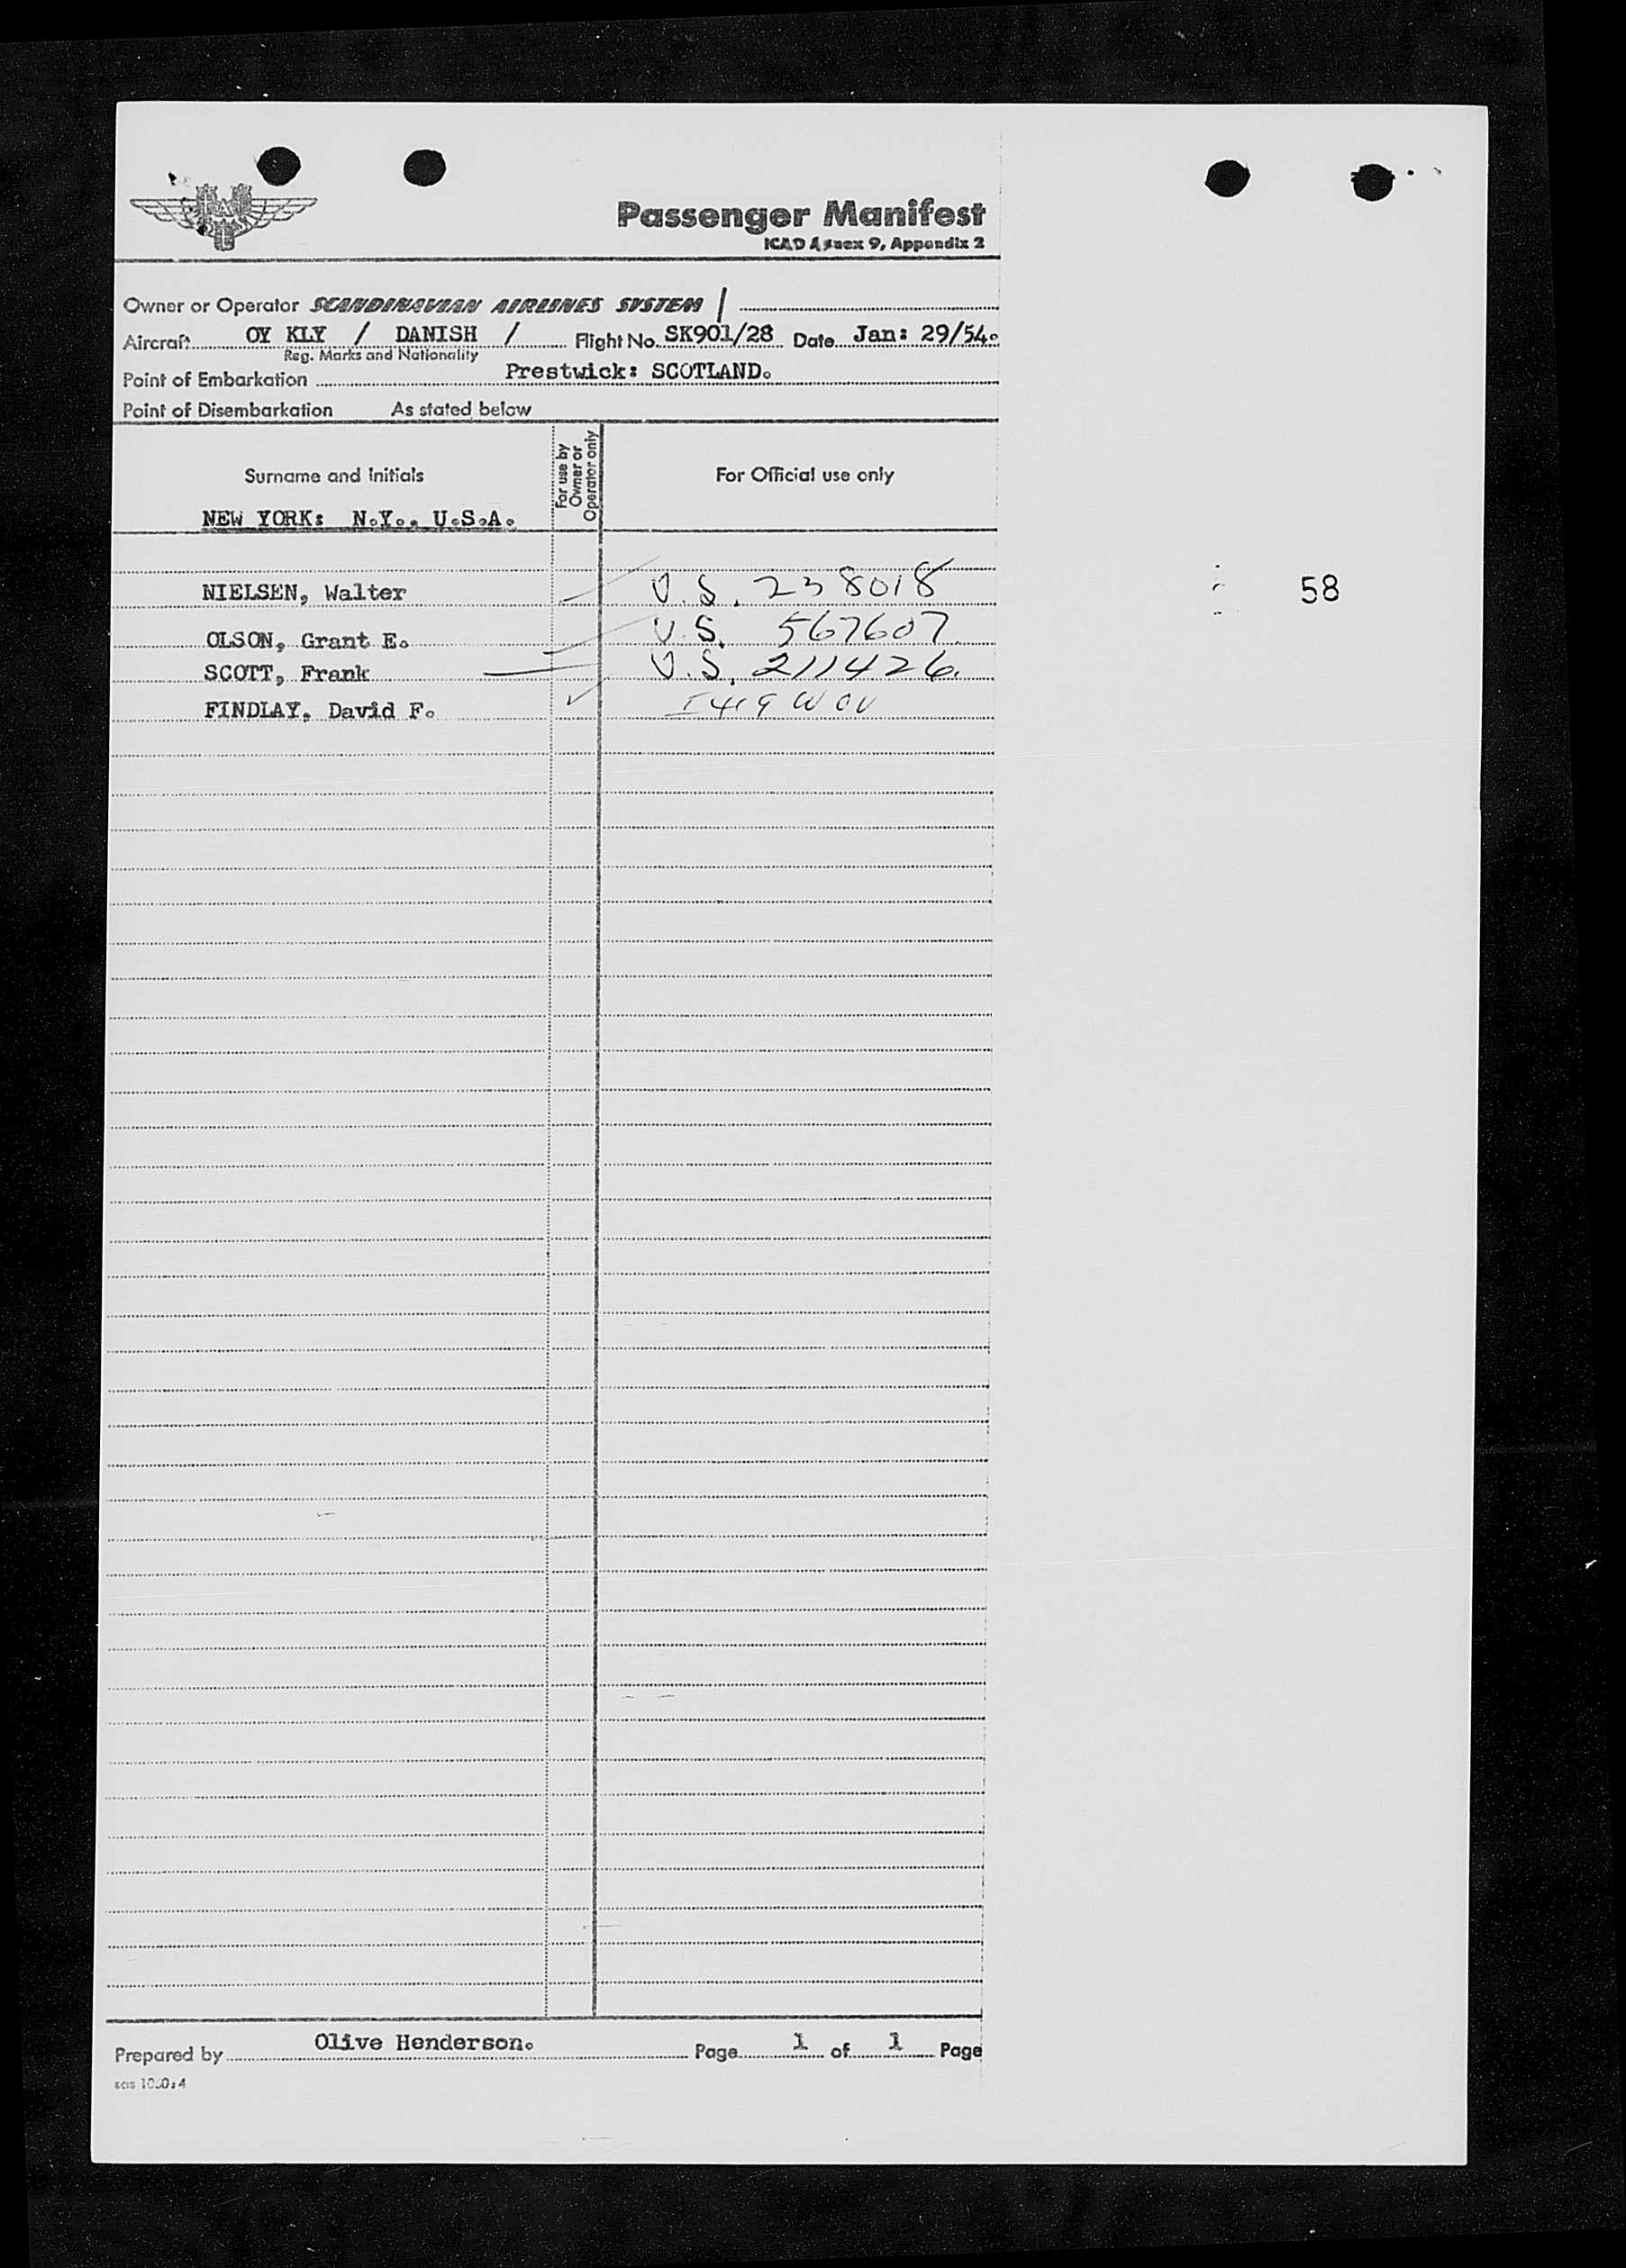 SAS
Passenger Manifest
ICAO Annex 9, Appendix 2
Owner or Operator SCANDINAVIAN AIRLINES SYSTEM /
Aircraft OY KLY / DANISH / Flight No. SK901/28 Date Jan: 29/54.
Reg. Marks and Nationality
Point of Embarkation Prestwick: SCOTLAND.
Point of Disembarkation As stated below
Surname and Initials For use by Owner or Operator only For Official use only
NEW YORK: N.Y., U.S.A.
NIELSEN, Walter U.S. 238018 58
OLSON, Grant E. U.S. 567607
SCOTT, Frank U.S. 211426.
FINDLAY, David F.
Prepared by Olive Henderson. Page 1 of 1 Page